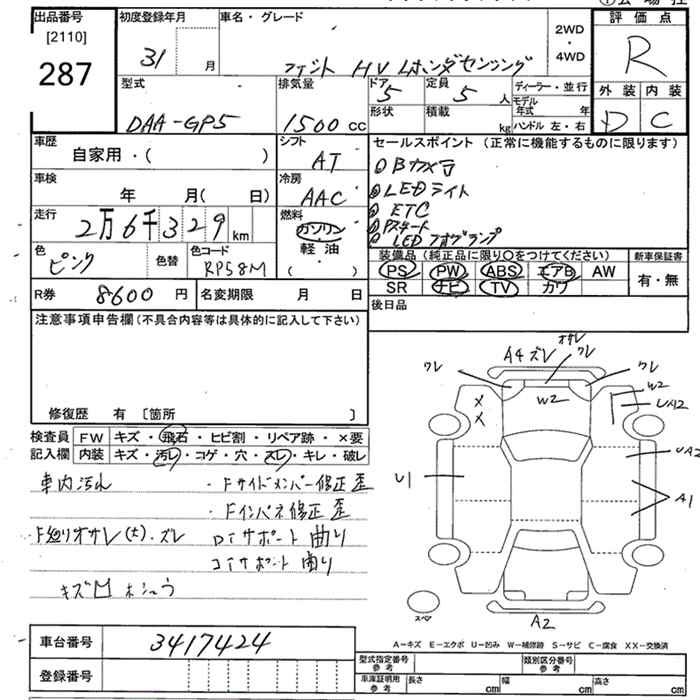 出品番号
[2110]
287
初度登録年月
31
月
車名・グレード
フィット HV Lホンダセンシング
2WD
・
4WD
評価点
R
型式
DAA-GP5
排気量
1500 cc
ドア
5
形状
定員
5
人
積載
kg
ディーラー・並行
モデル
年式 年
ハンドル 左・右
外装
D
内装
C
車歴
自家用・( )
シフト
AT
セールスポイント (正常に機能するものに限ります)
①Bカメラ
②LEDライト
③ETC
④Pスタート
⑤LEDフォグランプ
車検
年 月( 日)
冷房
AAC
走行
2万6千329 km
燃料
ガソリン
軽油
( ・ )
色
ピンク
色替
色コード
RP58M
装備品 (純正品に限り○をつけてください)
PS PW ABS エアB AW
SR ナビ TV カワ
新車保証書
有・無
R券
8600 円
名変期限 月 日
後日品
注意事項申告欄(不具合内容等は具体的に記入して下さい)
修復歴 有 [箇所 ]
検査員
記入欄
FW キズ・飛石・ヒビ割・リペア跡・×要
内装 キズ・汚レ・コゲ・穴・スレ・キレ・破レ
車内汚れ
・Fサイドメンバー修正歪
・Fインパネ修正歪
F廻りオサレ(大)・ズレ
ロアサポート曲り
コアサポート曲り
キズ凹 ホシュウ
オサレ
A4ズレ
ワレ
ワレ
ワレ
W2
W2
UA2
UA2
U1
A1
A2
スペア
車台番号
3417424
登録番号
A-キズ E-エクボ U-凹み W-補修跡 S-サビ C-腐食 XX-交換済
型式指定番号
参考
類別区分番号
参考
車庫証明用
参考
長さ cm
幅 cm
高さ cm